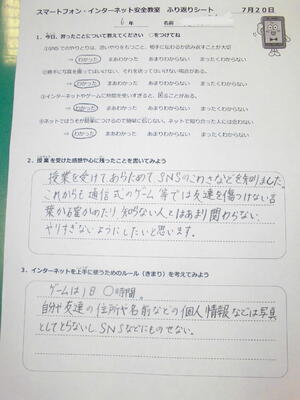 スマートフォン・インターネット安全教室 ふり返りシート 7月20日
6年 名前
1. 今日、習ったことについて教えてください ○をつけてね
⇒ わかった まあわかった あまりわからない まったくわからない
②勝手に写真を撮ってはいけない、それを送ってはいけない場合がある。
⇒ わかった まあわかった あまりわからない まったくわからない
③インターネットやゲームに時間を使いすぎると、困ることがある。
⇒ わかった まあわかった あまりわからない まったくわからない
⇒ わかった まあわかった あまりわからない まったくわからない
2. 授業を受けた感想や心に残ったことを書いてみよう
授業を受けて、あらためてSNSのこわさなどを知りました。
これからも通信式のゲーム等では友達を傷つけない言
葉か確かめたり、知らない人とはあまり関わらない、
やりすぎないようにしたいと思います。
3. インターネットを上手に使うためのルール(きまり)を考えてみよう
ゲームは1日〇時間。
自分や友達の住所や名前などの個人情報などは写真
としてとらないしSNSなどにものせない。